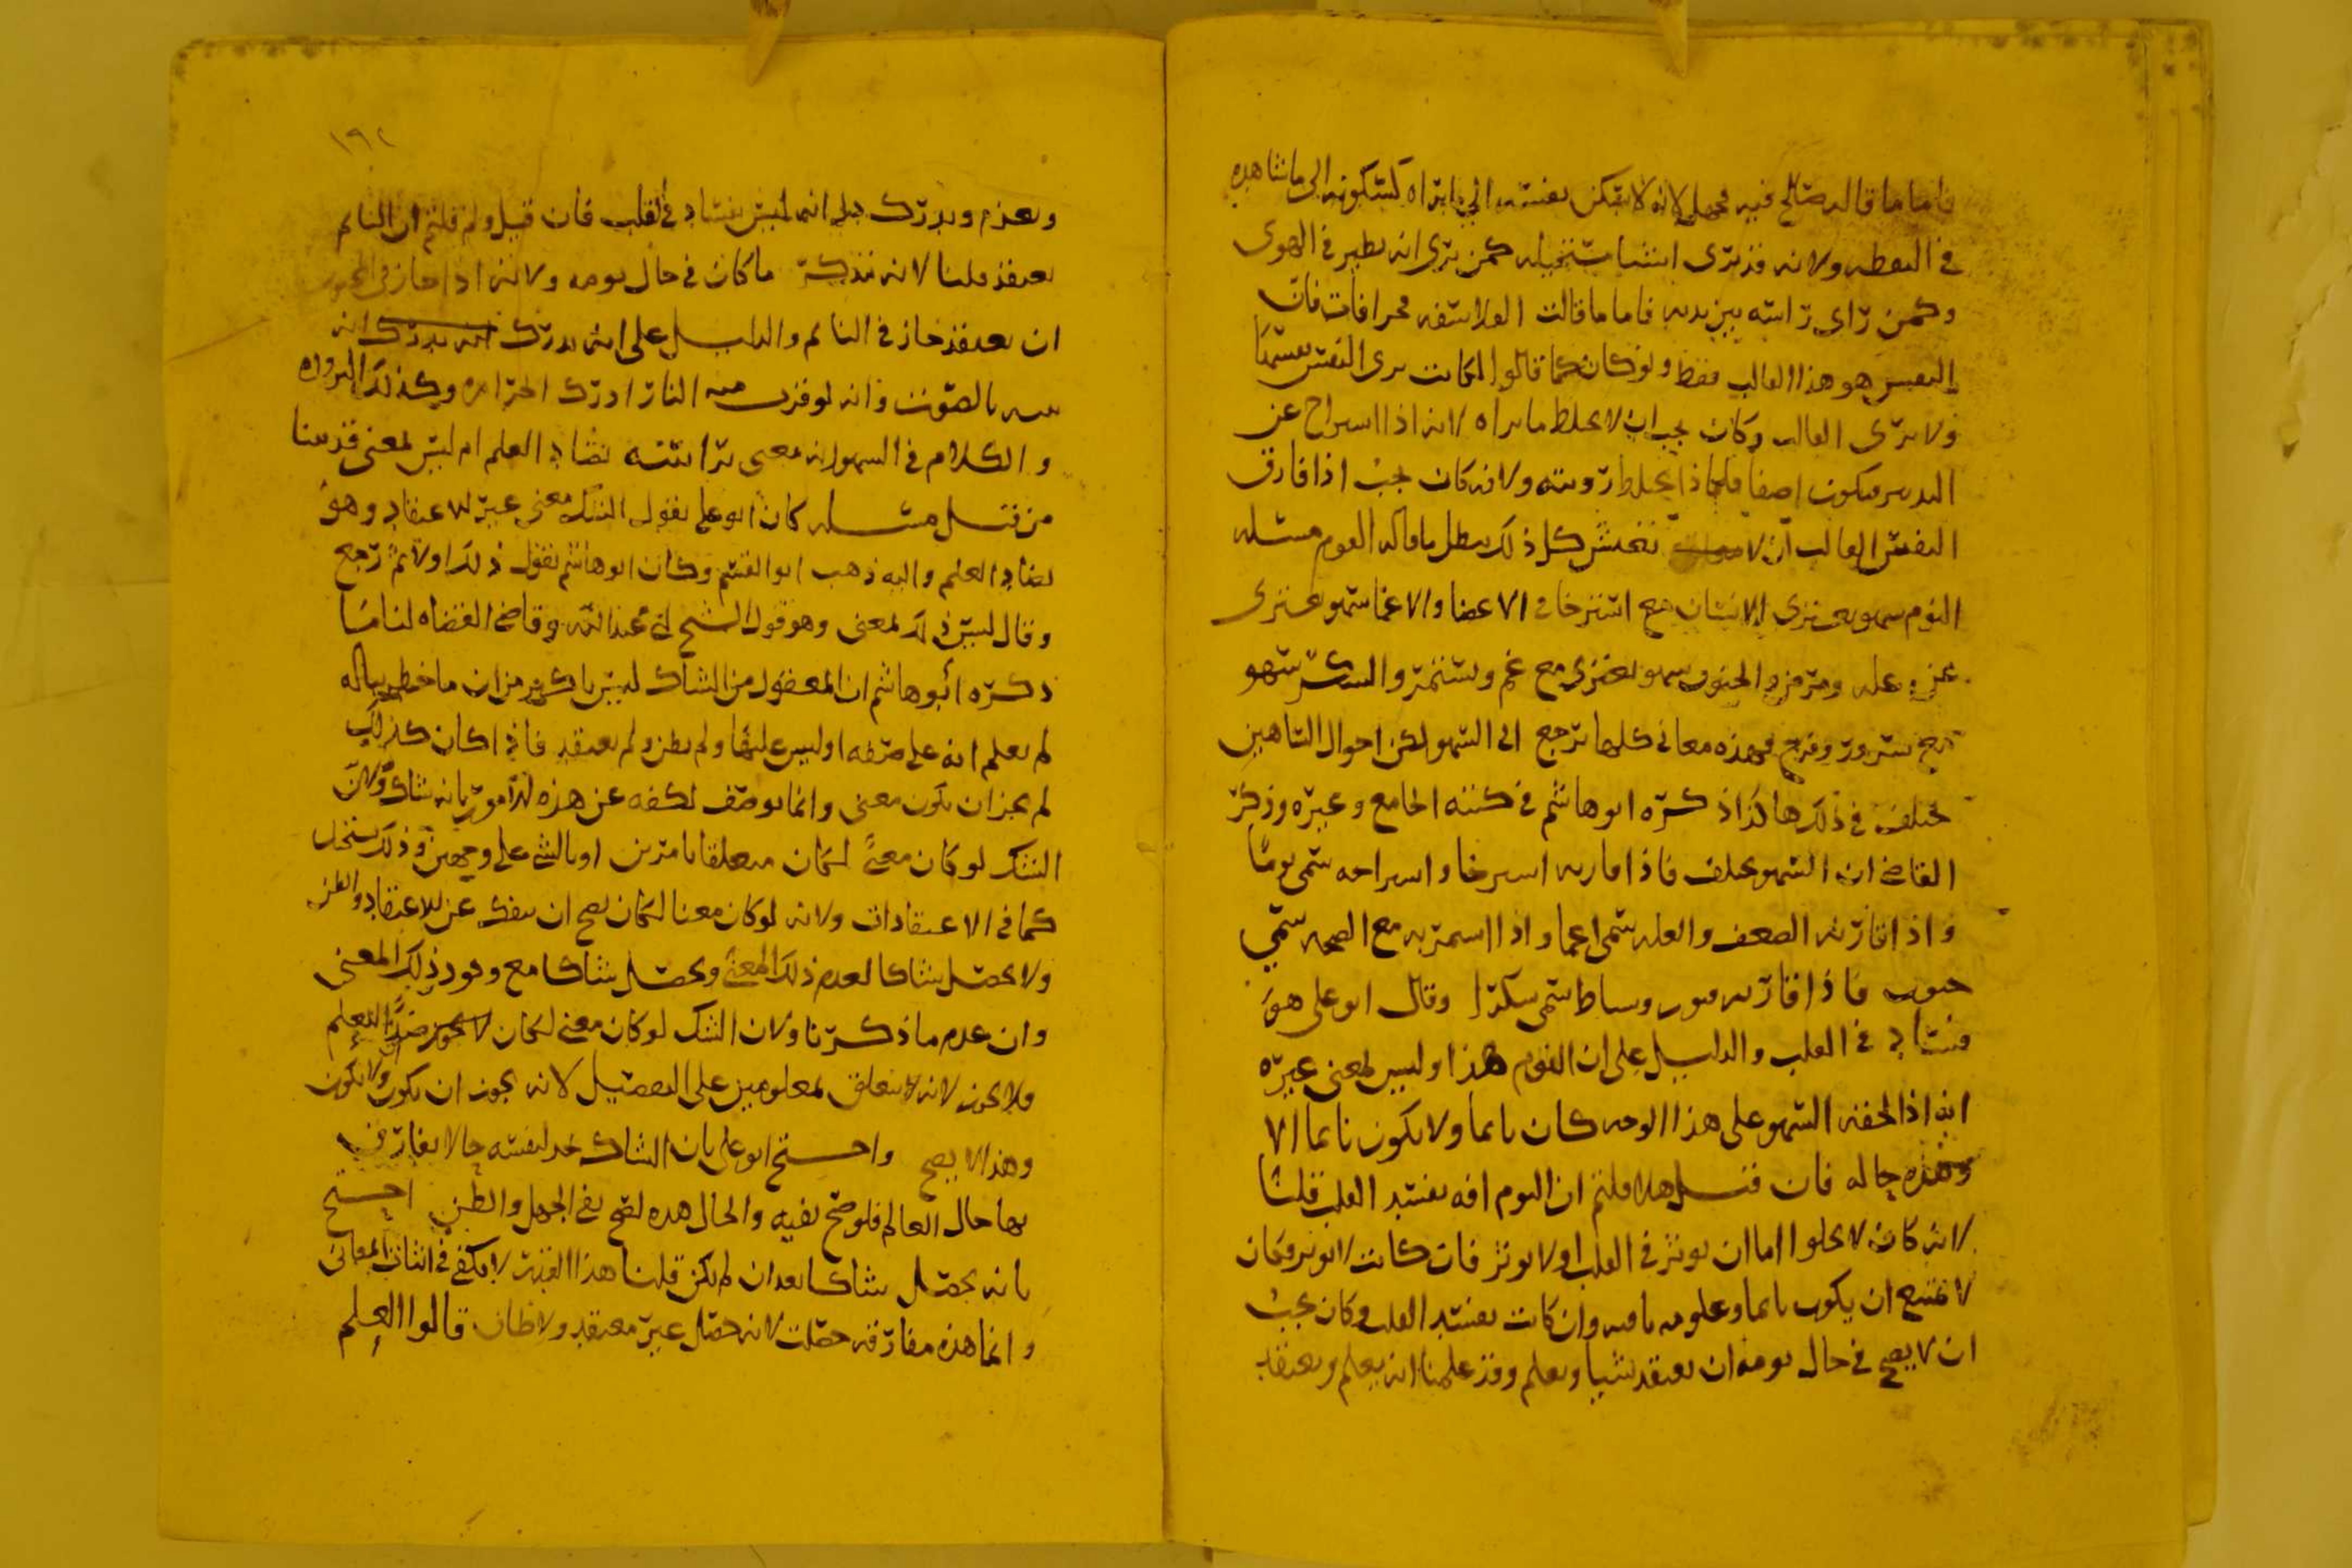 فاما ما قاله صالح فيه فجهل لانه لا تسكن نفسه الى ما يراه كسكونه الى ما نشاهده
في اليقظه ولانه قد يرى اشيا مستحيله كمن يرى انه يطير في الهوى
وكمن راى راسه بين يديه فاما ما قالت الفلاسفه فخرافات فان
النفس هو هذا القالب فقط ولو كان كما قالوا لكانت يرى النفس بعينها
ولا يرى القالب وكان يجب ان لا يخلط ما يراه لانه اذا استراح عن
البدن فيكون اصفا فلماذا يخلط رويته ولانه كان يجب اذا فارق
النفس القالب ان لا يحس كل ذلك يبطل ما قاله القوم مسئله
النوم سهو يعتري الانسان مع استرخا في الاعضا والاغما سهو يعتري
عن عله ومرض والجنون سهو يعتري مع غم ويستمر والسكر سهو
مع سرور وفرح فهذه معاني كلها ترجع الى السهو لكن احوال الساهين
تختلف في ذلك هكذا ذكره ابو هاشم في كتبه الجامع وغيره وذكر
القاضي ان السهو يختلف فاذا قاربه استرخا واستراحه سمي نوما
واذا قارنه الضعف والعله سمي اغما واذا استمر به مع الصحه سمي
جنون فاذا قارنه فتور ونشاط سمي سكرا وقال ابو علي هو
فساد في القلب والدليل على ان النوم هذا وليس لمعنى غيره
انه اذا لحقه السهو على هذا الوجه كان نائما ولا يكون نائما الا
وهذه حاله فان قيل هلا قلتم ان النوم افه تفسد القلب قلنا
لانه كان لا يخلوا اما ان يوثر في القلب او لا يوثر فان كانت لا توثر فكان
لا يمتنع ان يكون نائما وعلومه باقيه وان كانت تفسد القلب فكان يجب
ان لا يصح في حال نومه ان يعتقد شيا ويعلم وقد علمنا انه يعلم ويعتقد
١٩٢
ويعزم ويدرك دل انه ليس بفساد في القلب فان قيل ولم قلتم ان النائم
يعتقد قلنا لانه يتذكر ما كان في حال نومه ولانه اذا جاز في المجنون
ان يعتقد جاز في النائم والدليل على انه يدرك انه يدرك انه
ينتبه بالصوت وانه لو قرب منه النار ادرك الحراره وكذلك البروده
والكلام في السهو انه معنى براسه يضاد العلم ام ليس لمعنى قد بينا
من قبل مسئله كان ابو علي يقول الشك معنى غير الاعتقاد وهو
يضاد العلم واليه ذهب ابو القسم وكان ابو هاشم يقول ذلك اولا ثم رجع
وقال ليس ذلك لمعنى وهو قول الشيخ ابي عبد الله وقاضي القضاه لنا ما
ذكره أبو هاشم ان المعقول من الشاك ليس باكثر من ان ما خطر بباله
لم يعلم انه على صفه او ليس عليها ولم يظن ولم يعتقد فاذا كان كذلك
لم يجز ان يكون معنى وانما يوصف لكفه عن هذه الامور بانه شاك ولان
الشك لو كان معنى لكان متعلقا بامرين او بالشي على وجهين وذلك يستحيل
كما في الاعتقادات ولانه لو كان معنا لكان يصح ان ينفك عن الاعتقاد والظن
ولا يحصل شاكا لعدم ذلك المعنى ويحصل شاكا مع وجود ذلك المعنى
وان عدم ما ذكرنا ولان الشك لو كان معنى لكان لا يجوز ضد العلم
ولا يجوز لانه لا يتعلق بمعلومين على التفصيل لانه يجوز ان يكون ولا يكون
وهذا لا يصح واحتج ابو علي بان الشاك يجد لنفسه حالا يفارق
بها حال العالم فلو صح نفيه والحال هذه لصح نفي الجهل والظن احتج
بانه يحصل شاكا بعد ان لم يكن قلنا هذا القدر لا يكفي في اثبات المعاني
وانما هذه مفارقه حصلت لانه حصل غير معتقد ولا ظان قالوا العلم